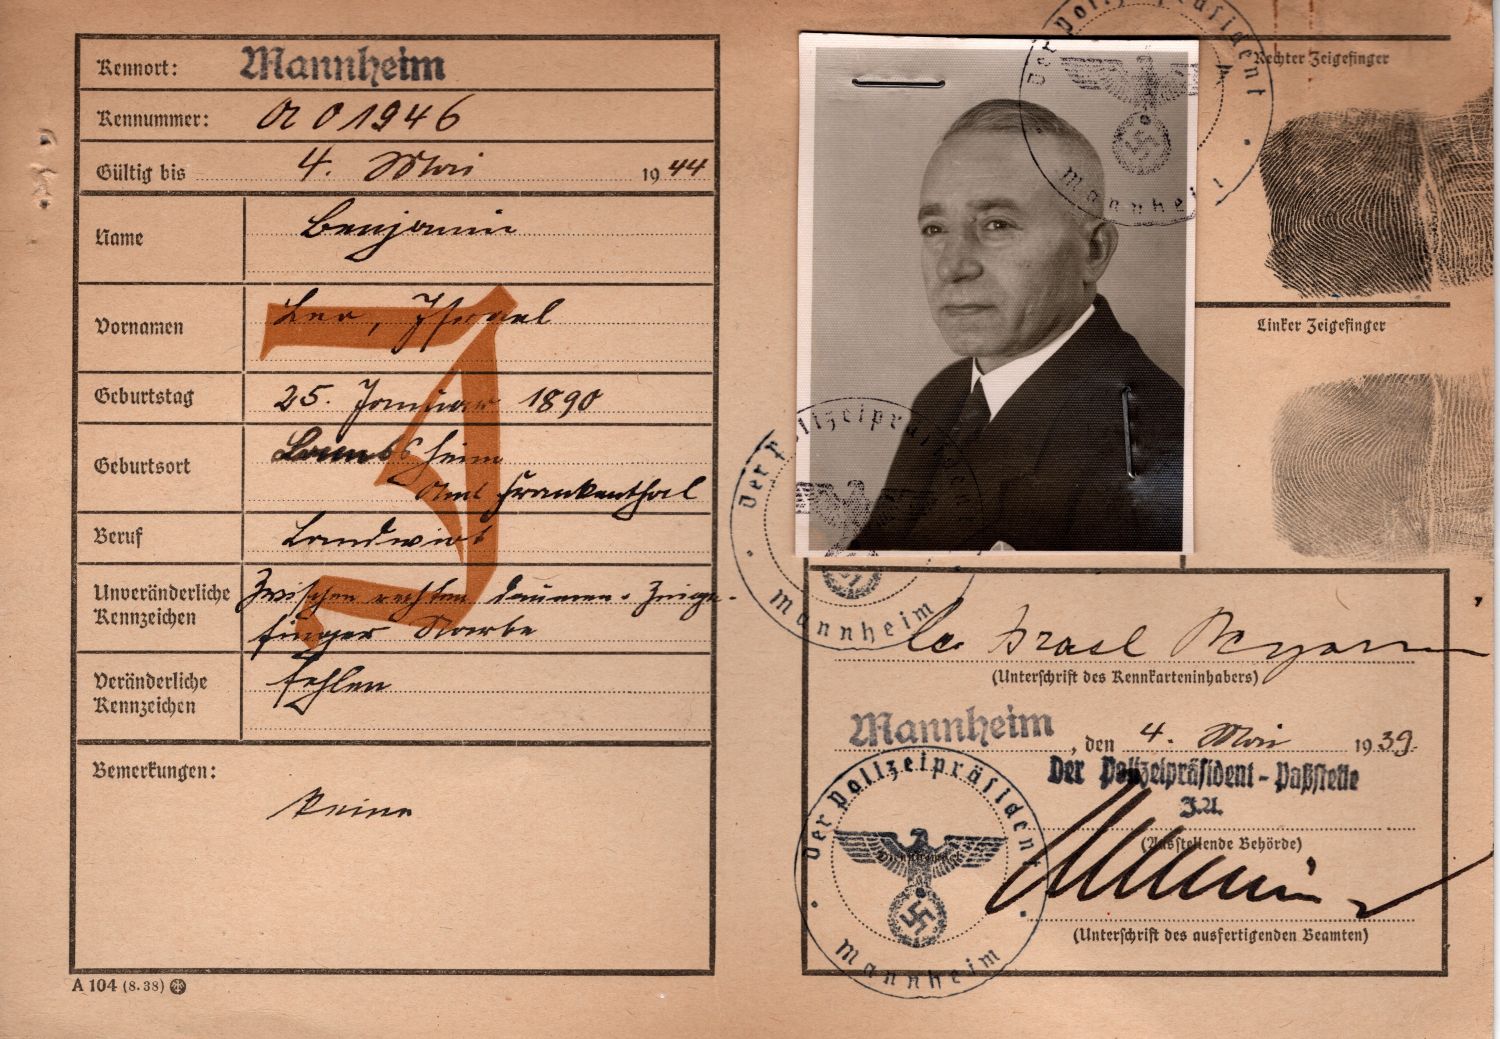 Kennort: Mannheim
Kennummer: A 01946
Gültig bis 4. Mai 1944
Name Benjamin
Vornamen Leo, Israel
Geburtstag 25. Januar 1890
Geburtsort Lambsheim
Amt Frankenthal
Beruf Landwirt
Unveränderliche Kennzeichen Zwischen rechten Daumen- Zeige-
finger Narbe
Veränderliche Kennzeichen fehlen
Bemerkungen:
keine
J
A 104 (8.38)
Der Polizeipräsident
Mannheim
Rechter Zeigefinger
Linker Zeigefinger
Der Polizeipräsident
Mannheim
Leo Israel Benjamin
(Unterschrift des Kennkarteninhabers)
Mannheim, den 4. Mai 1939.
Der Polizeipräsident - Paßstelle
J.A.
(Ausstellende Behörde)
Der Polizeipräsident
Mannheim
(Unterschrift des ausfertigenden Beamten)